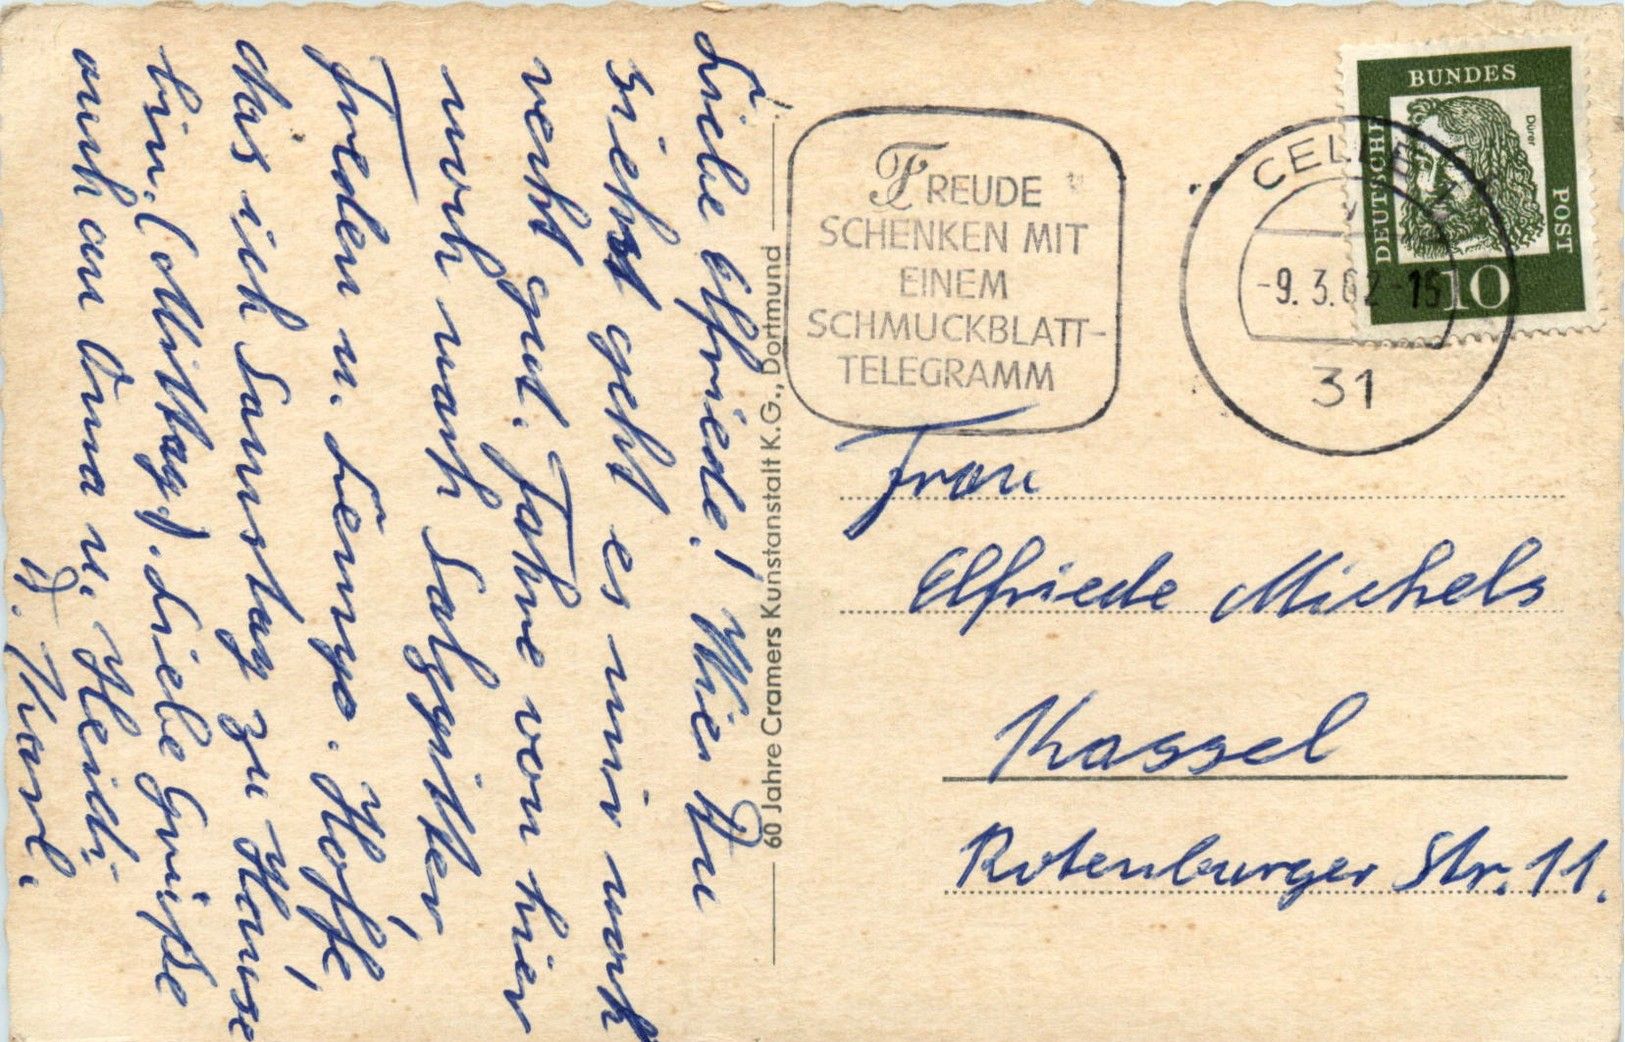 Liebe Elfriede! Wie Du
siehst geht es mir noch
recht gut. Fahre von hier
noch nach Salzgitter,
Treden u. Lemgo. Hoffe,
das ich Samstag zu Hause
bin. (Mittag). Liebe Grüße
auch an Oma u. Heidi
D. Karl.
60 Jahre Cramers Kunstanstalt K.G., Dortmund
FREUDE
SCHENKEN MIT
EINEM
SCHMUCKBLATT-
TELEGRAMM
CELLE 1
-9.3.62-15
31
DEUTSCHE
BUNDES
POST
Dürer
10
Frau
Elfriede Michels
Kassel
Rotenburger Str. 11.